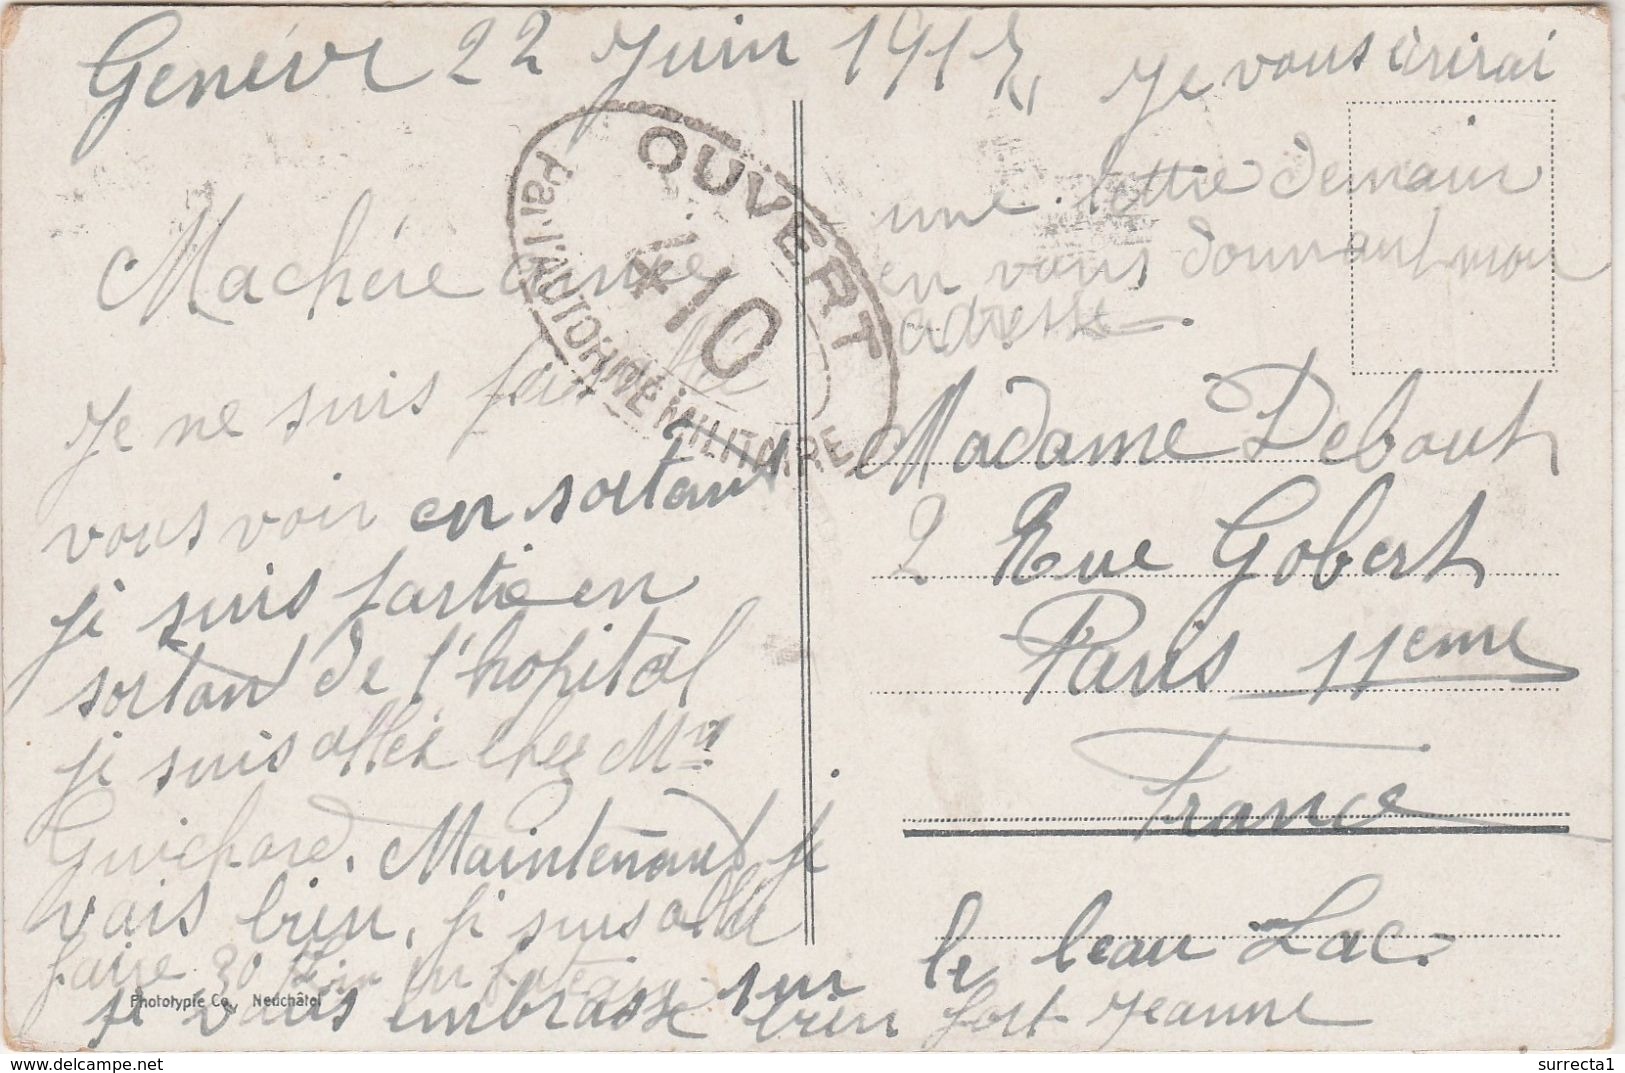 Genève 22 Juin 191
Ma chère amie
Je ne suis pas allée
vous voir en sortant
je suis partie en
sortant de l'hopital
je suis allée chez Mr
Guichard. Maintenant je
vais bien, je suis allée
faire 30 en bateau
sur le beau Lac.
je vous embrasse bien fort Jeanne
Je vous écrirai
une lettre demain
en vous donnant mon
adresse.
Madame Debout
2 Rue Gobert
Paris 11eme
France
OUVERT
*10
Par l'AUTORITÉ MILITAIRE
Phototypie Co., Neuchâtel
delcampe.net
surrecta1